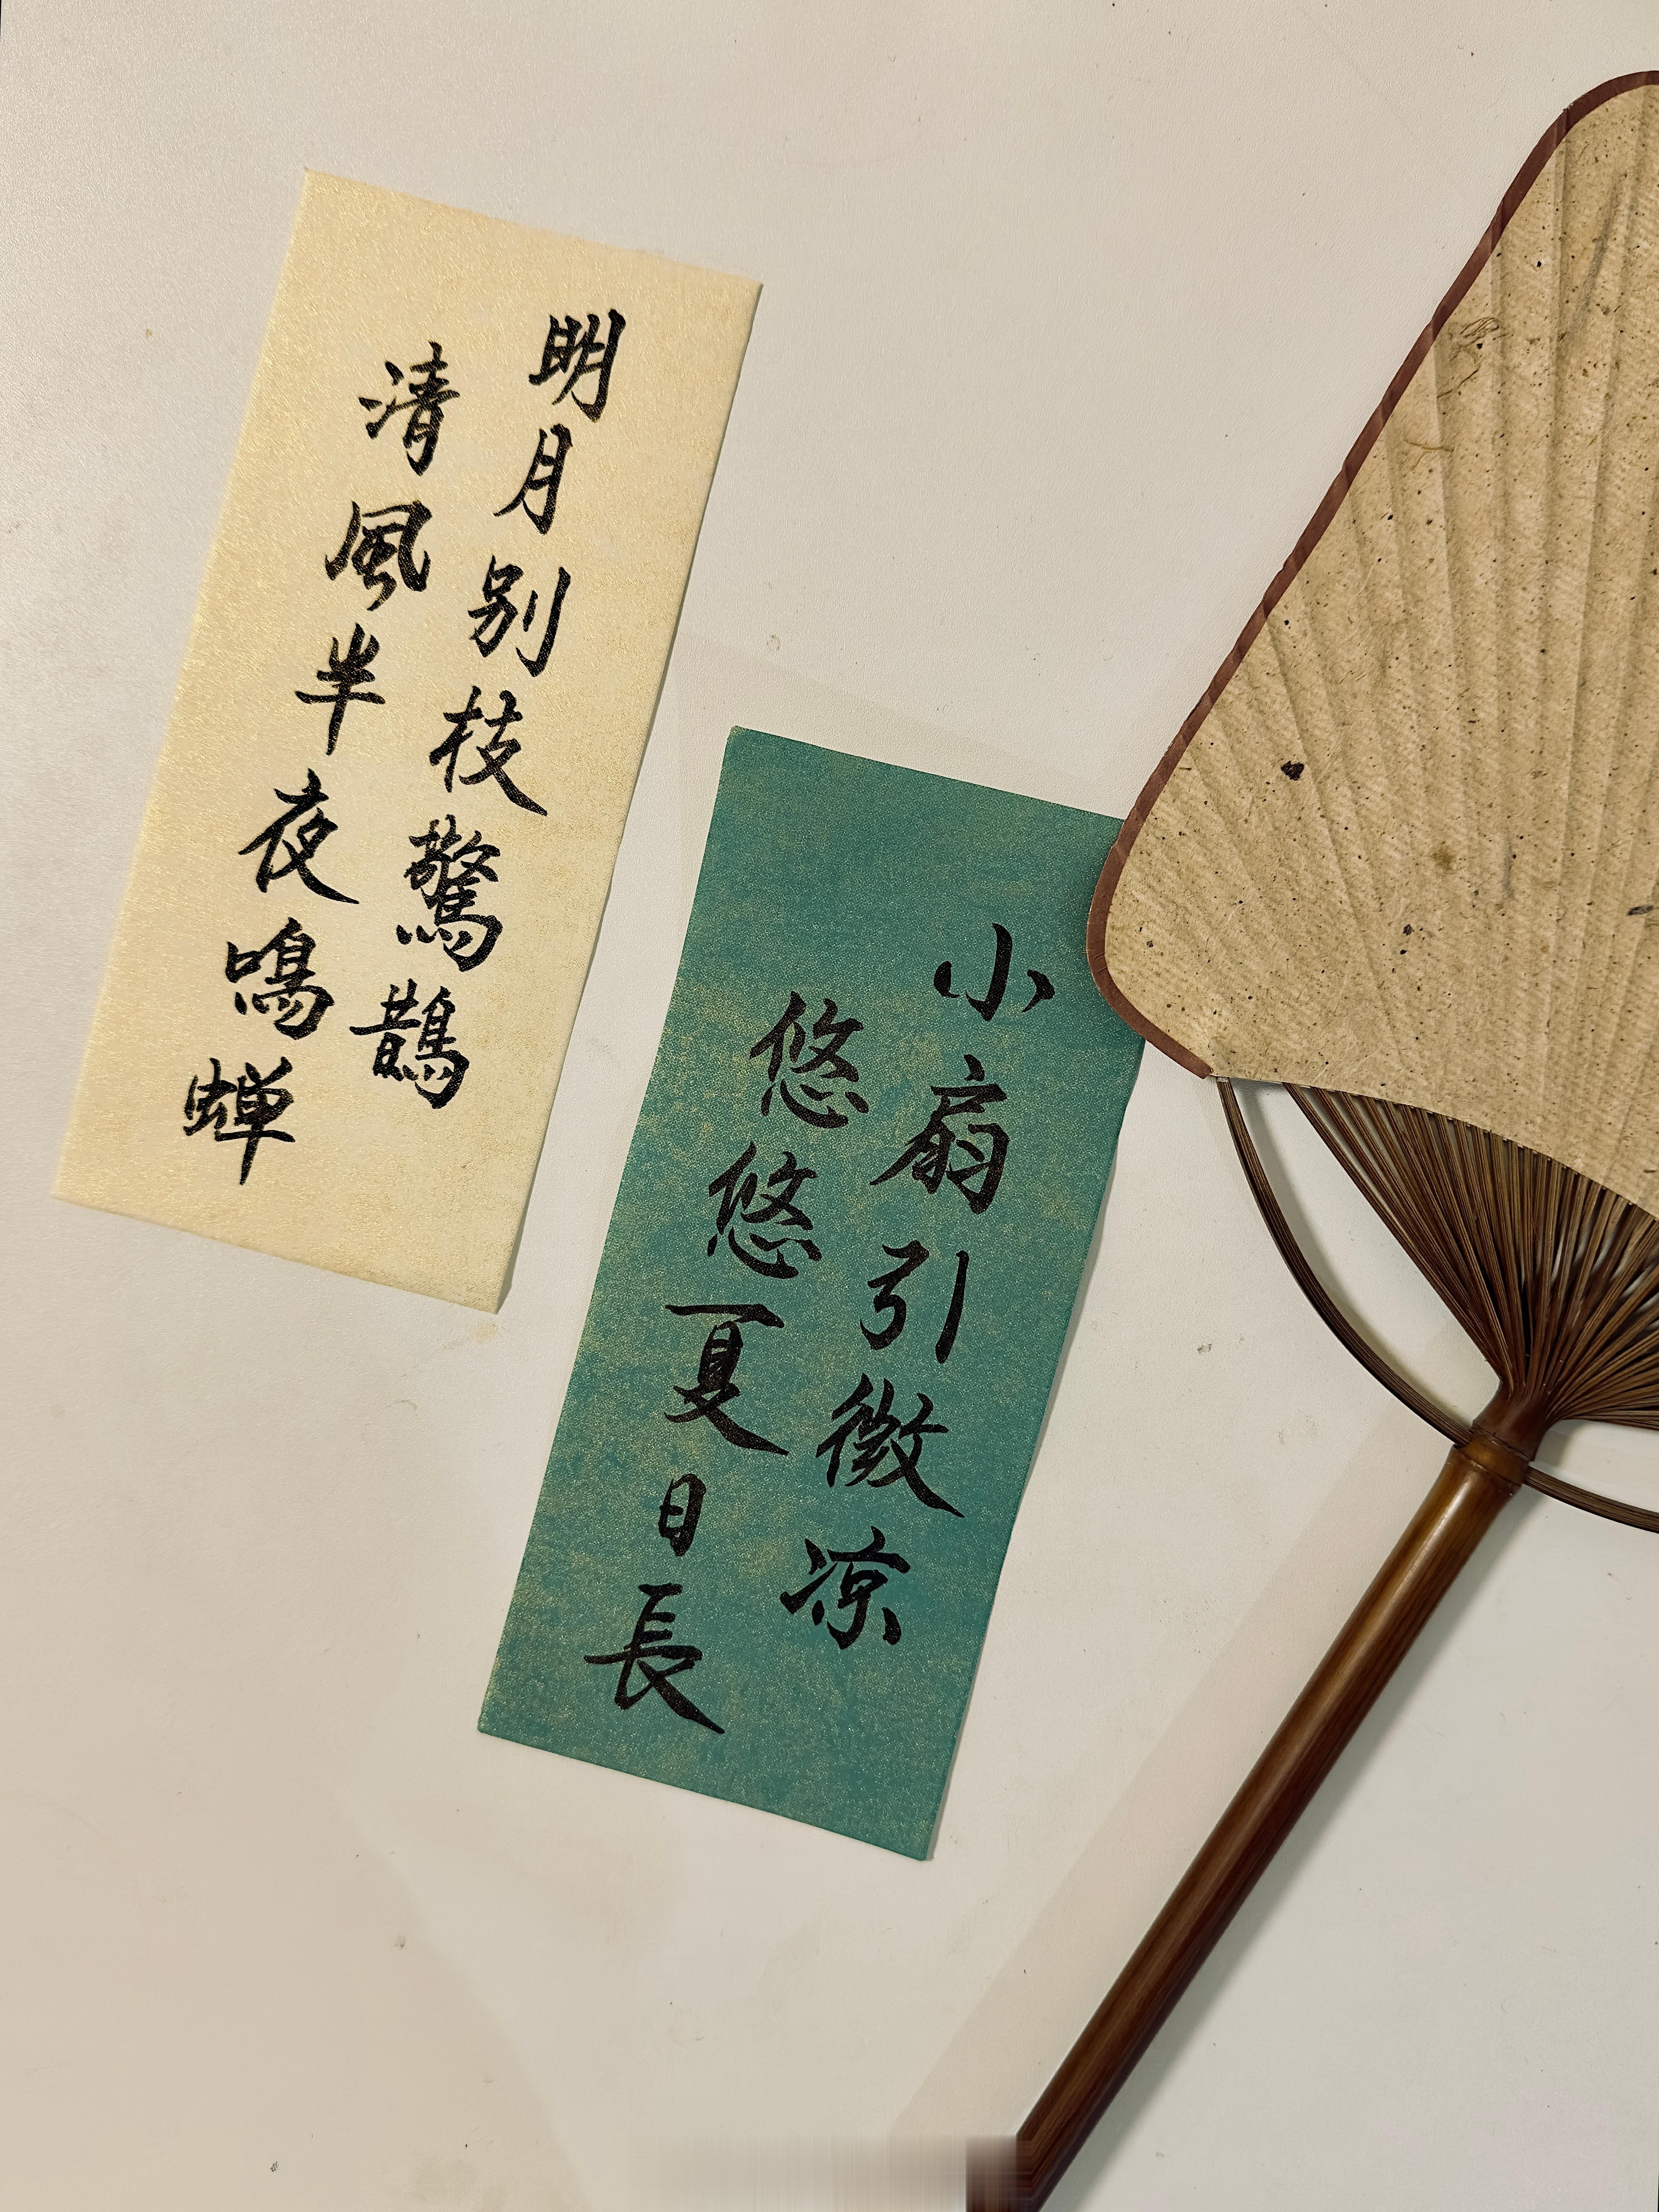 明月别枝驚鵲
清風半夜鳴蝉
小扇引微凉
悠悠夏日長